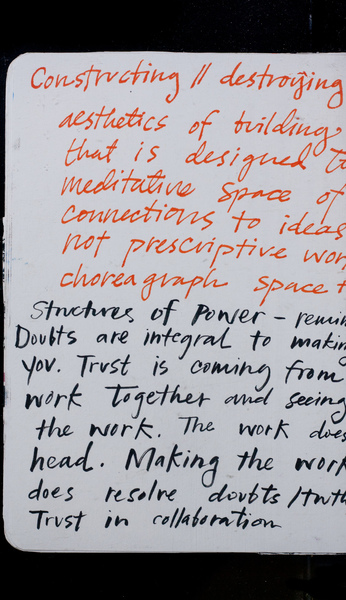 Constructing // destroying
aesthetics of building
that is designed to
meditative space of
connections to ideas
not prescriptive wor
choreagraph space
Structures of Power – remin
Doubts are integral to makin
you. Trust is coming from
work together and seeing
the work. The work does
head. Making the work
does resolve doubts/truth
Trust in collaboration